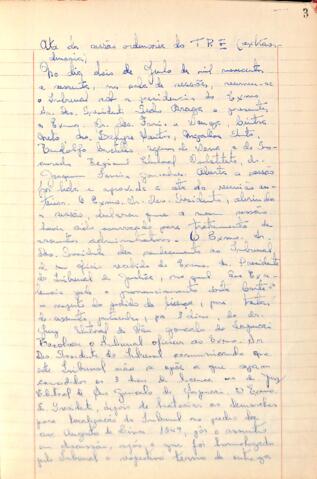 3
Ata da sessão ordinária do T.R.E. (extraor-
dinária)
Aos dia dois de Junho de mil novecentos
e sessenta, na sala de sessões, reuniu-se
o Tribunal sob a presidência do Exmo.
Sr. Des. Presidente Braga e presentes
o Exmo. Sr. Des. Faria e
Neto, Des. Santos,
Rodolfo de Sena e do
Regional Eleitoral Substituto, dr.
Joaquim Ferreira Gonçalves. Aberta a sessão
foi lida e aprovada a ata da reunião an-
terior. O Exmo. Sr. Des. Presidente, abrindo
a sessão, declarou que a
convocação para tratamento de
assuntos administrativos. O Exmo. Sr.
Des. Presidente deu conhecimento ao Tribunal,
de um ofício recebido do Exmo. Sr. Presidente
do Tribunal de Justiça, no qual Sua Exce-
lência pede o pronunciamento desta Corte
a respeito do pedido de licença, para tratar
de assuntos particulares, por 3 dias, do dr.
Juiz Eleitoral de São Gonçalo do Sapucaí
Resolveu o Tribunal oficiar ao Exmo. Sr.
Des. Presidente do Tribunal comunicando que
este Tribunal não se opõe a que sejam
concedidos os 3 dias de licença ao dr. Juiz
Eleitoral de São Gonçalo do Sapucaí. O Exmo.
S. Presidente, depois de historiar as demarches
para localização do Tribunal no prédio da
rua Augusto de Lima 1549, pôs o assunto
em discussão, após o que foi homologado
pelo Tribunal o respectivo termo de entrega